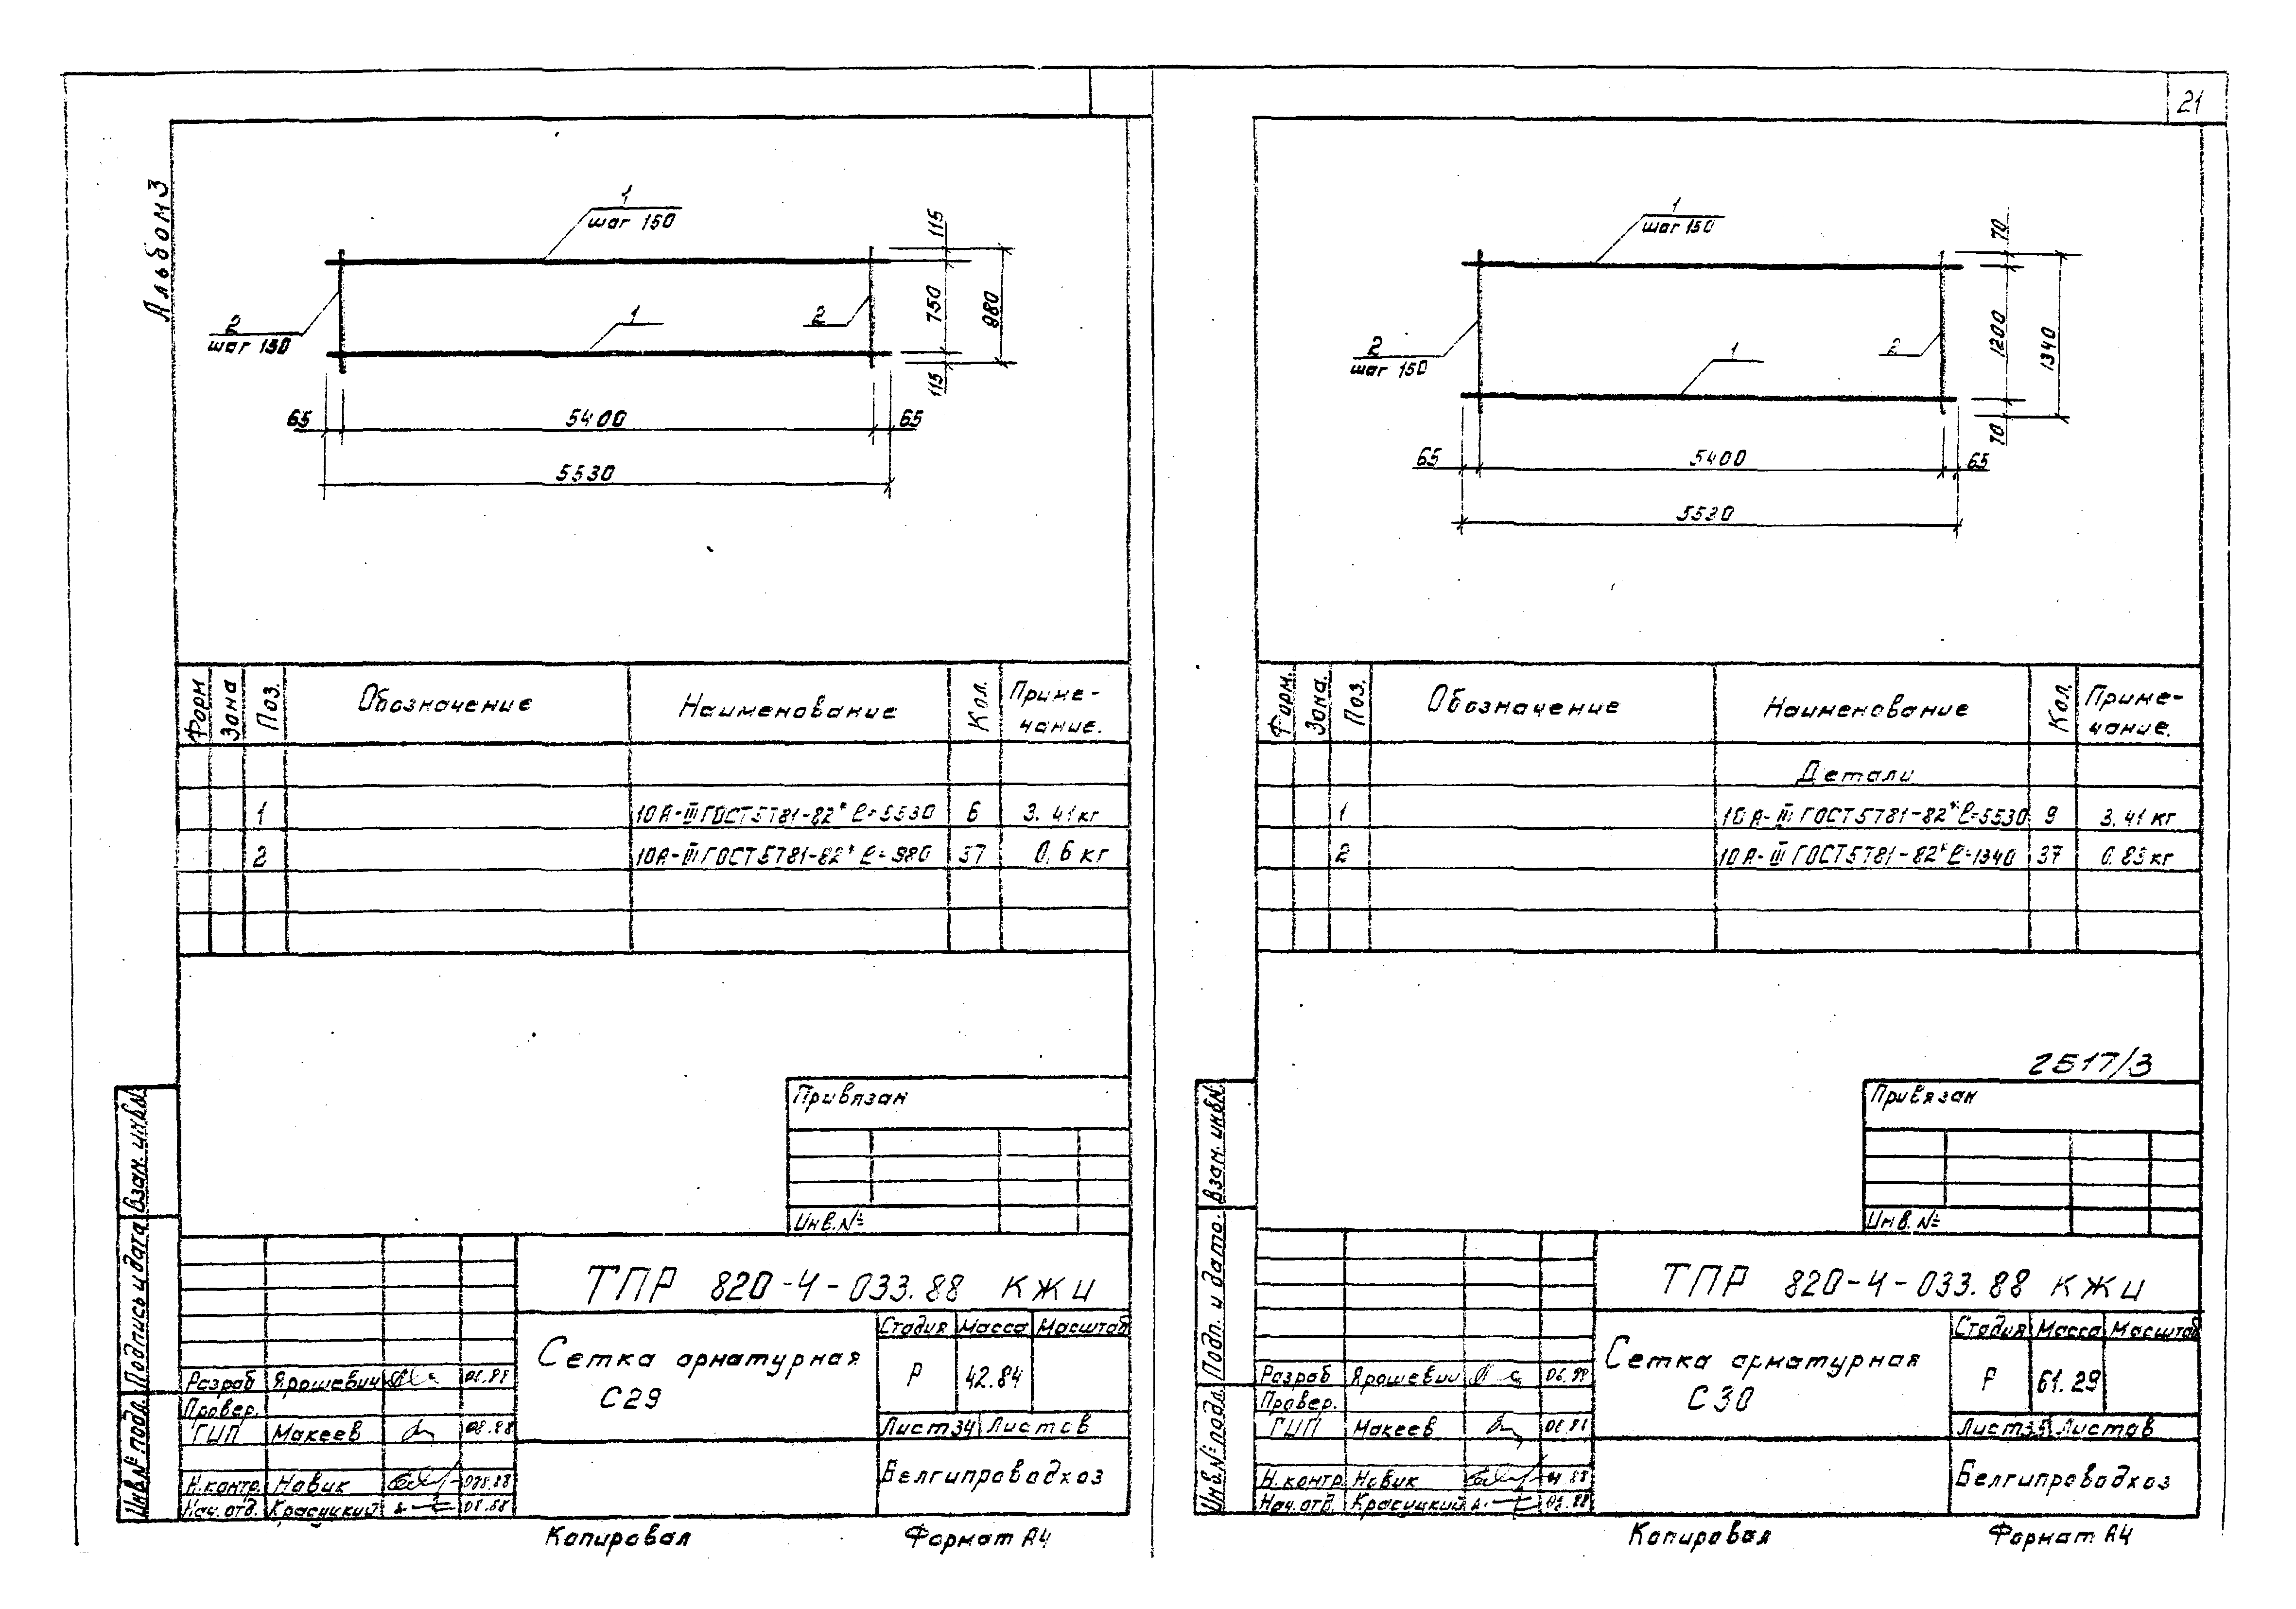 21
Альбом 3
1
шаг 150
115
2
шаг 150
1
2
750
980
115
65
5400
65
5530
Форм
Зона
Поз.
Обозначение
Наименование
Кол.
Приме-
чание.
1 10А-III ГОСТ 5781-82* ℓ=5530 6 3.41 кг
2 10А-III ГОСТ 5781-82* ℓ=980 37 0,6 кг
Привязан
Инв.№
Взам. инв.N
Подпись и дата
Инв.№ подл.
ТПР 820-4-033.88 КЖИ
Сетка арматурная
С29
Стадия Масса Масштаб
Р 42.84
Лист 34 Листов
Белгипроводхоз
Разраб Ярошевич
Провер.
ГИП Макеев 08.88
Н.контр. Новик
Нач.отд. Красуцкий 08.88
Копировал Формат А4
1
шаг 150
70
2
шаг 150
1
2
1200
1340
70
65
5400
65
5530
Форм.
Зона.
Поз.
Обозначение
Наименование
Кол.
Приме-
чание.
Детали
1 10А-III ГОСТ 5781-82* ℓ=5530 9 3.41 кг
2 10А-III ГОСТ 5781-82* ℓ=1340 37 0.83 кг
2517/3
Привязан
Инв.№
Взам. инв.N.
Подп. и дата.
Инв.№ подл.
ТПР 820-4-033.88 КЖИ
Сетка арматурная
С30
Стадия Масса Масштаб
Р 61.29
Лист 35 Листов
Белгипроводхоз
Разраб Ярошевич
Провер.
ГИП Макеев
Н.контр. Новик
Нач.отд. Красуцкий
Копировал Формат А4